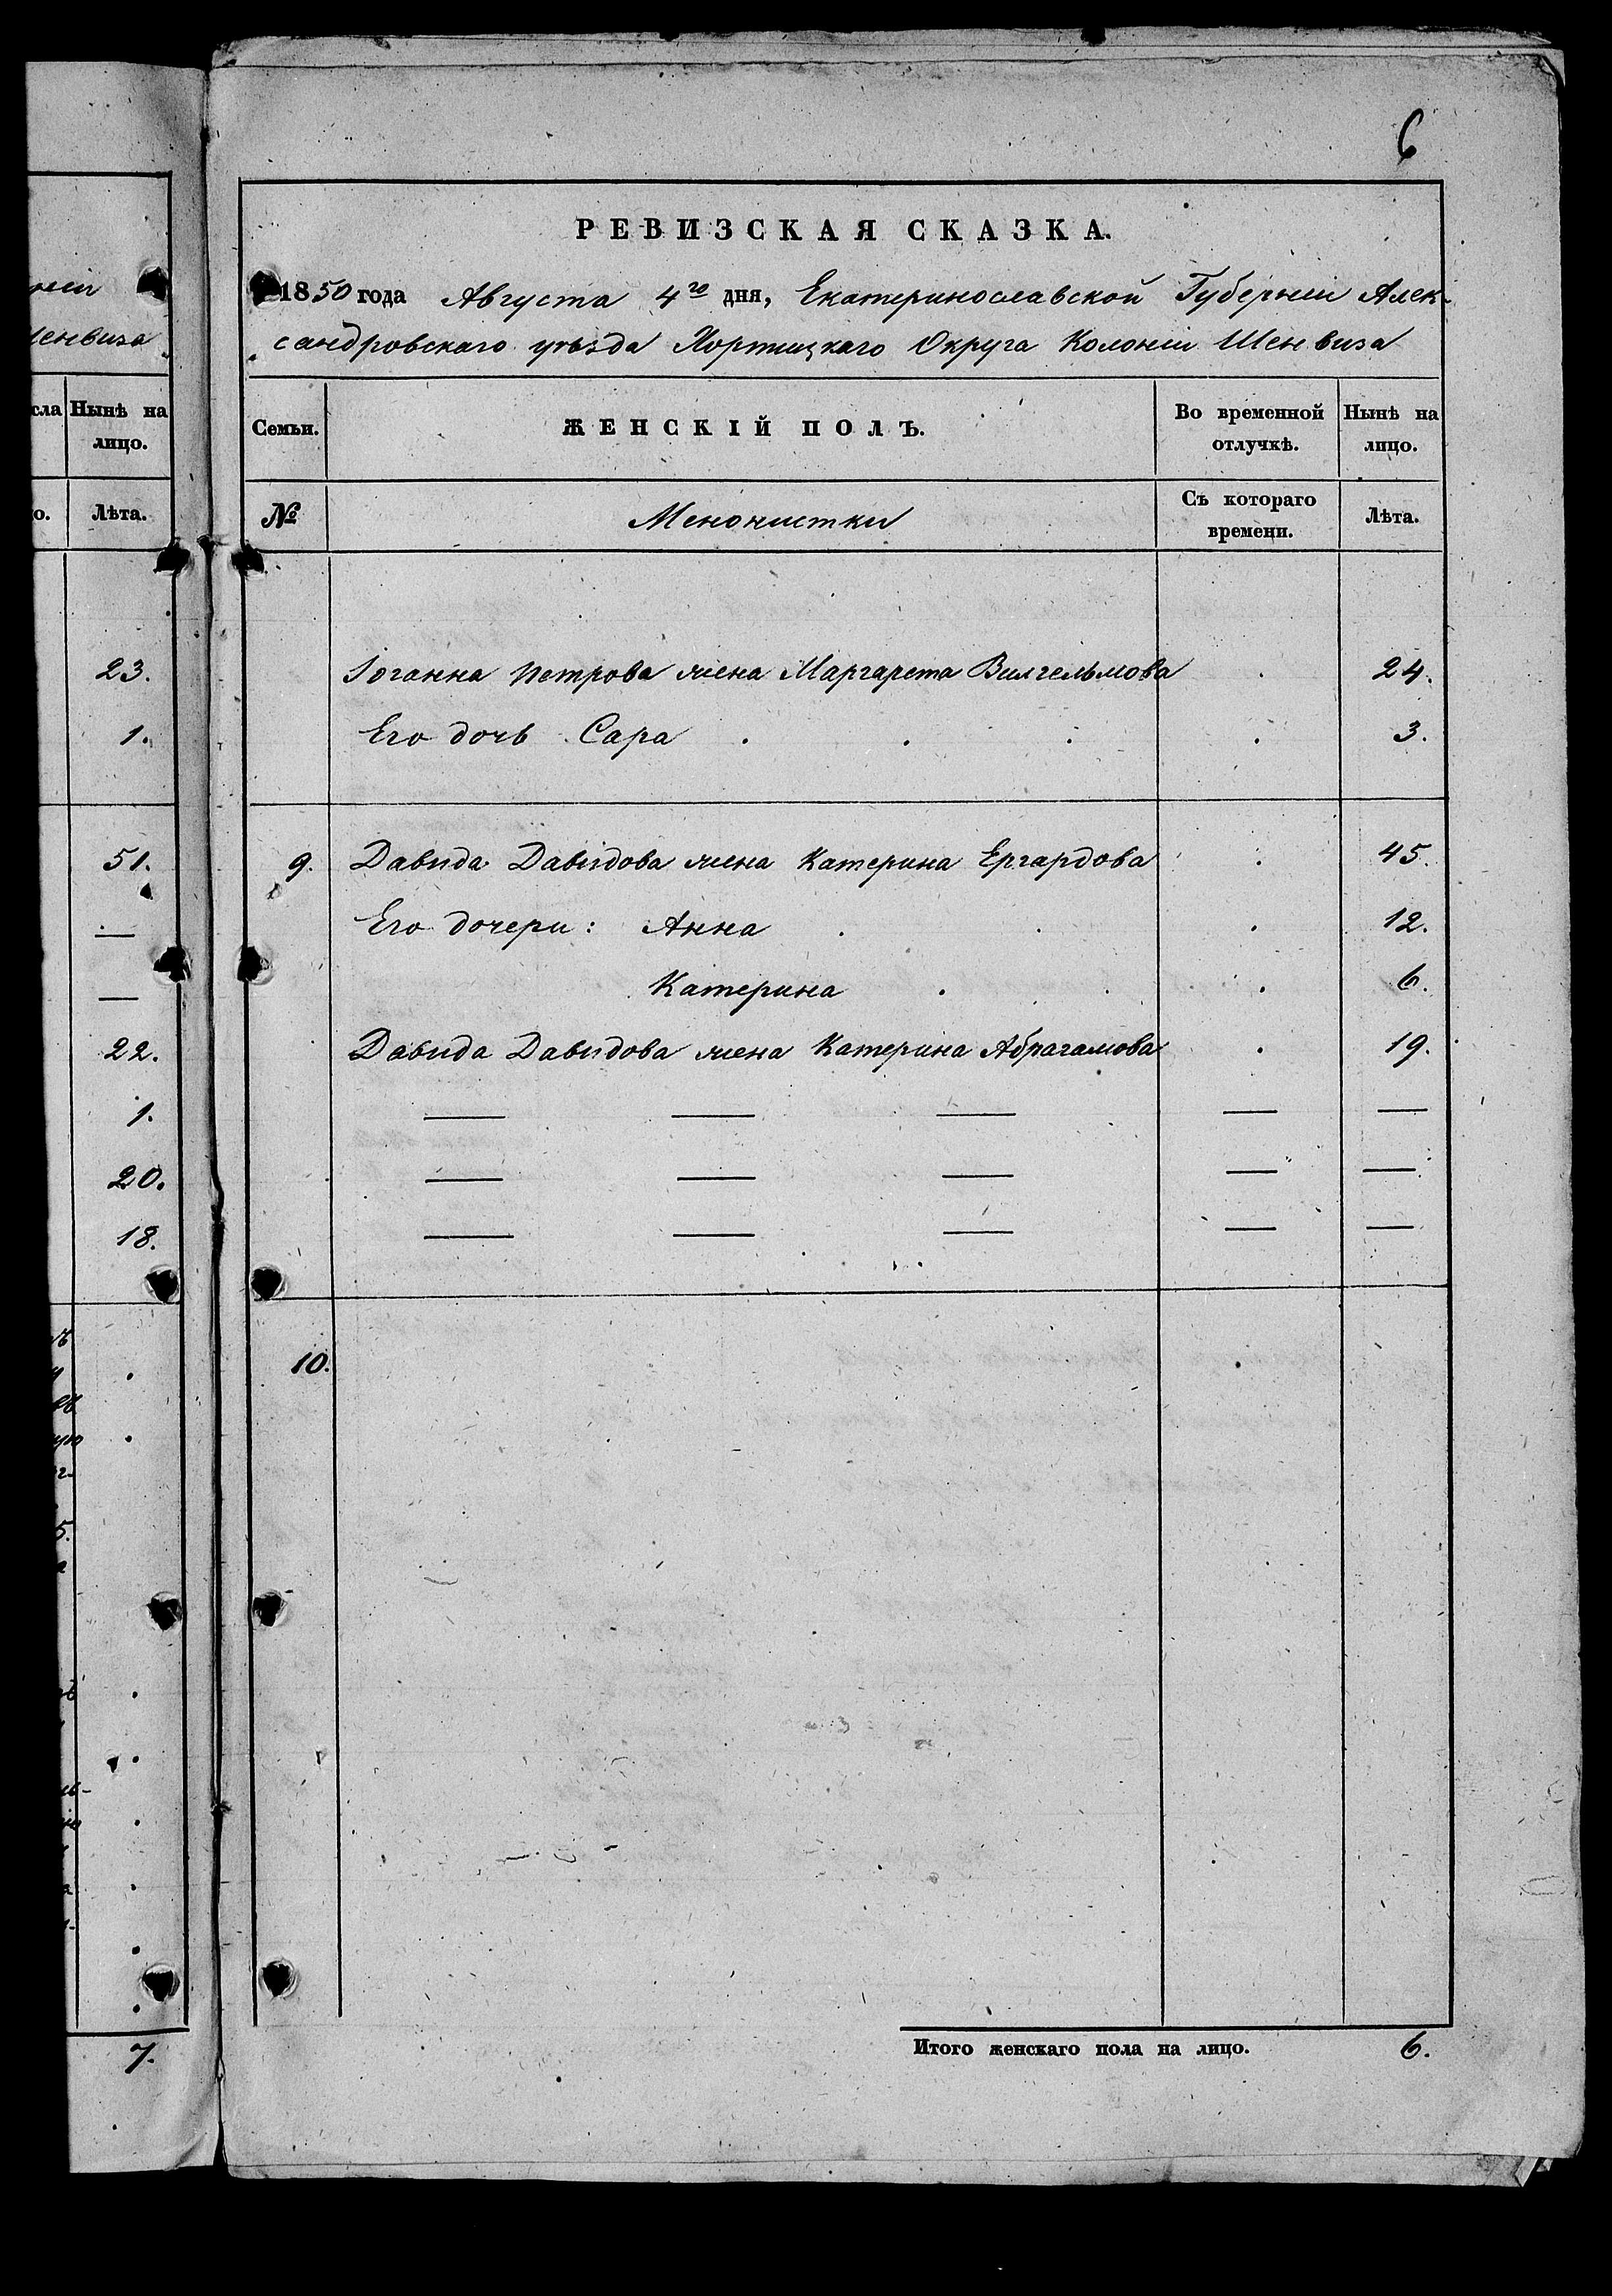 6
РЕВИЗСКАЯ СКАЗКА.
1850 года Августа 4го дня, Екатеринославской Губерніи Алек-
сандровскаго уѣзда Хортицкаго Округа Колоніи Шенвиза
Семьи. ЖЕНСКІЙ ПОЛЪ. Во временной отлучкѣ. Нынѣ на лицо.
№ Менонистки Съ котораго времени. Лѣта.
Іоганна Петрова жена Маргарета Вилгельмова 24.
Его дочь Сара 3.
9. Давида Давидова жена Катерина Ергардова 45.
Его дочери: Анна 12.
Катерина 6.
Давида Давидова жена Катерина Абрагамова 19.
10.
Итого женскаго пола на лицо. 6.
Нынѣ на
лицо.
Лѣта.
23.
1.
51.
22.
1.
20.
18.
7.